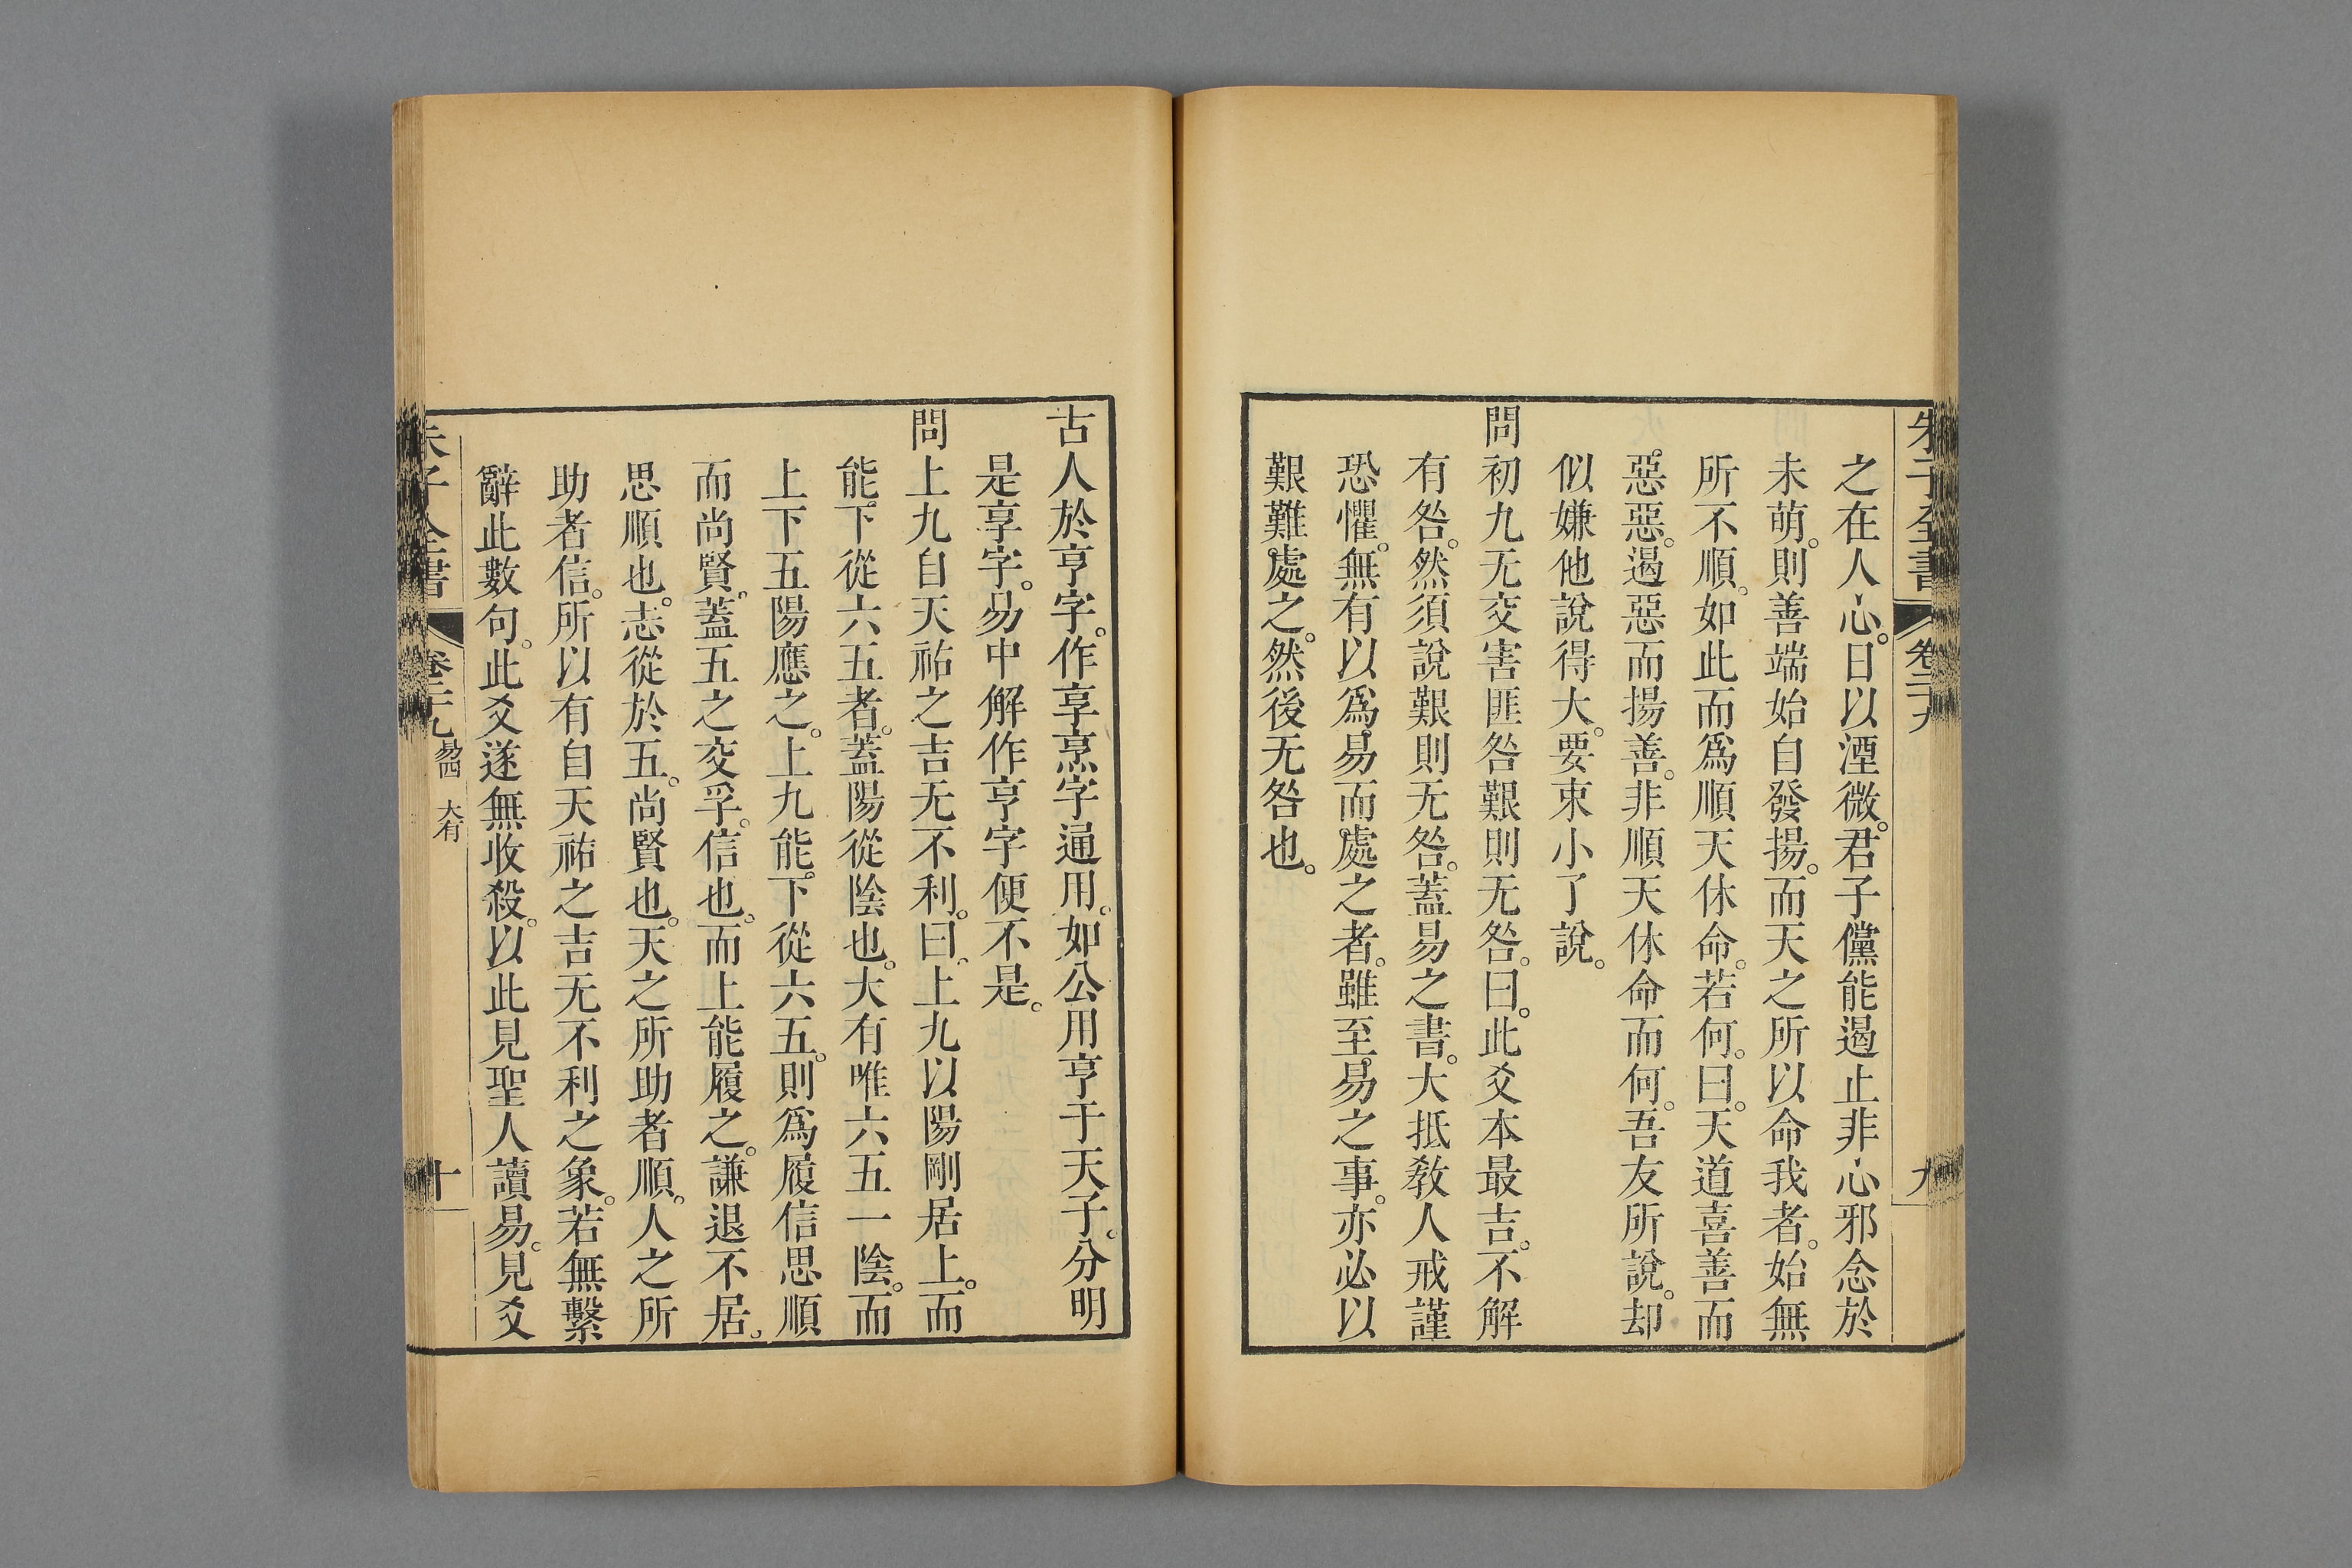 朱子全書 卷二十九 九
之在人心。日以湮微。君子儻能遏止非心邪念於
未萌。則善端始自發揚。而天之所以命我者。始無
所不順。如此而爲順天休命。若何。曰。天道喜善而
惡惡。遏惡而揚善。非順天休命而何。吾友所說。却
似嫌他說得大。要束小了說。
問初九无交害匪咎艱則无咎。曰。此爻本最吉。不解
有咎。然須說艱則无咎。蓋易之書。大抵敎人戒謹
恐懼。無有以爲易而處之者。雖至易之事。亦必以
艱難處之。然後无咎也。
古人於亨字。作享烹字通用。如公用亨于天子。分明
是享字。易中解作亨字便不是。
問上九自天祐之吉无不利。曰。上九以陽剛居上。而
能下從六五者。蓋陽從陰也。大有唯六五一陰。而
上下五陽應之。上九能下從六五。則爲履信思順
而尚賢。蓋五之交孚。信也。而上能履之。謙退不居。
思順也。志從於五。尚賢也。天之所助者順。人之所
助者信。所以有自天祐之吉无不利之象。若無繫
辭此數句。此爻遂無收殺。以此見聖人讀易。見爻
朱子全書 卷二十九 易四 大有 十